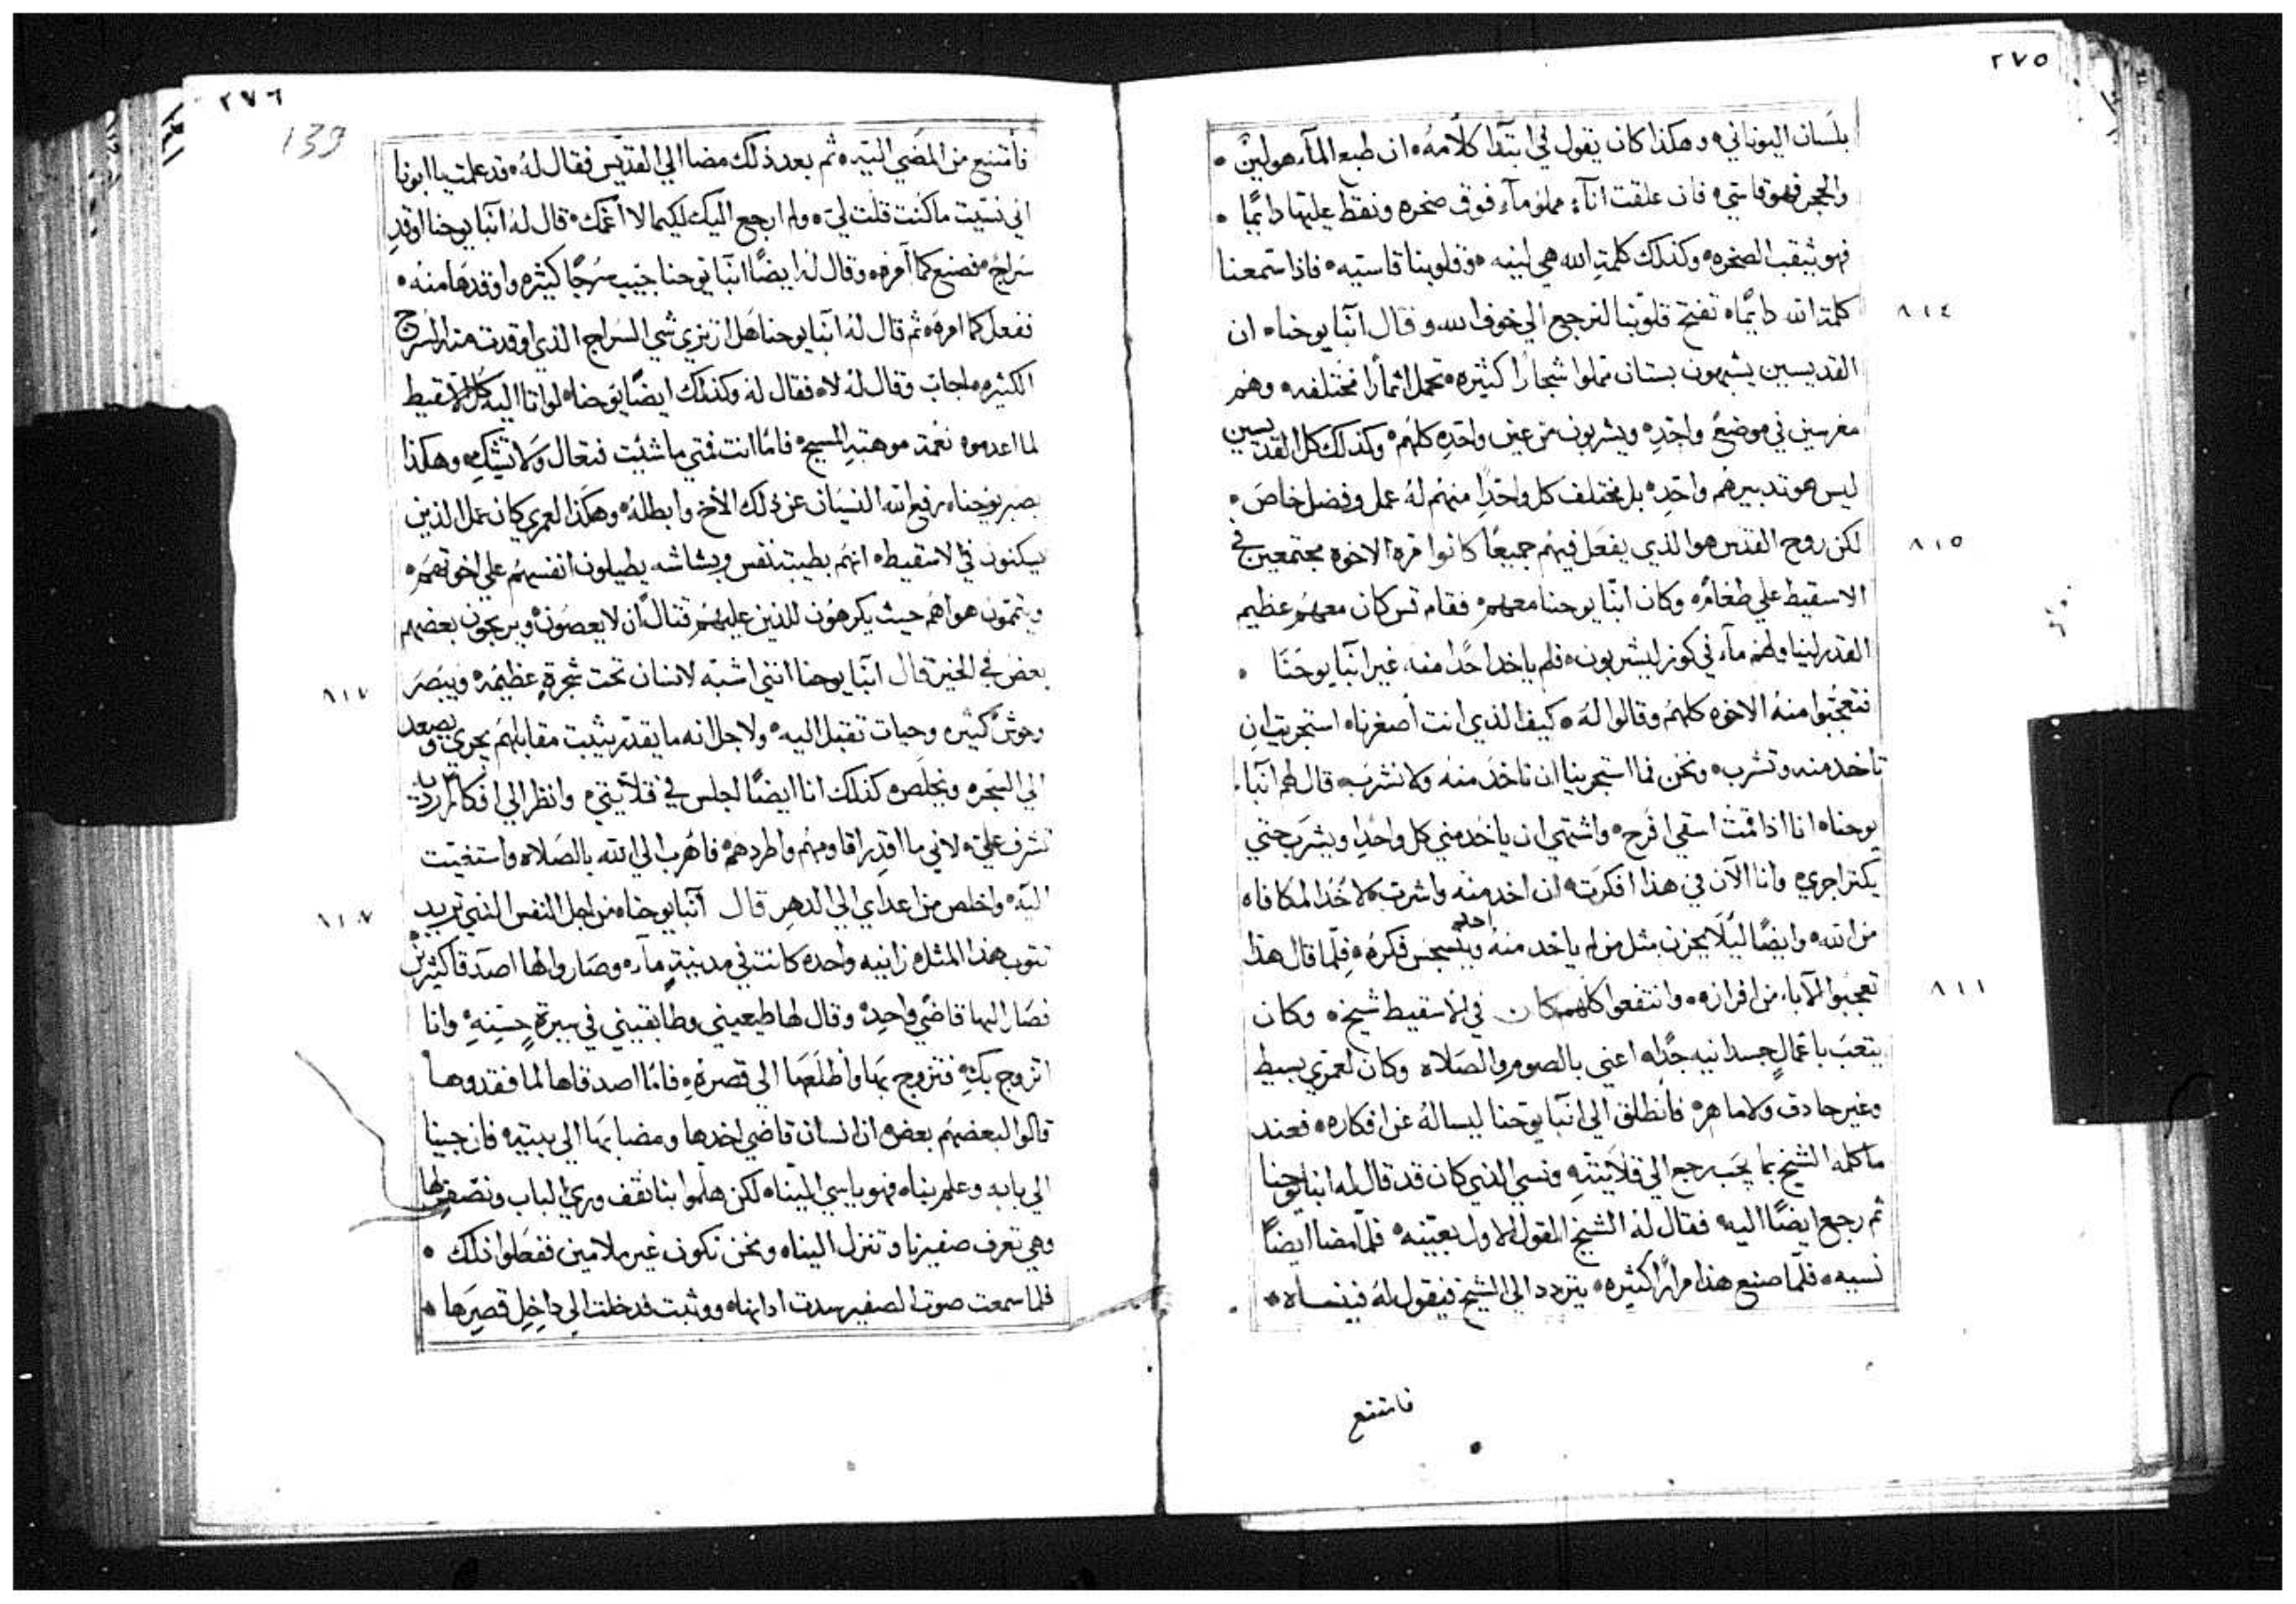 ٢٧٥
بلسان اليوناني وهكذا كان يقول في ابتدا كلامه ان طبع المآء هو لين
والحجر فهو قاسي فان علقت انآء مملو مآء فوق صخره ونقط عليها دايمًا
فهو يثقب الصخره وكذلك كلمة الله هي لينه وقلوبنا قاسيه فاذا استمعنا
٨١٤
كلمة الله دايمًا تفتح قلوبنا لنرجع الي خوف الله وقال انبا يوحنا ان
القديسين يشبهون بستان مملوا شجارًا كثيره تحمل اثمارًا مختلفه وهم
مغرسين في موضع واحد ويشربون من عين واحده كلهم وكذلك كل القديسين
ليس هو تدبيرهم واحد بل مختلف كل واحدًا منهم له عمل وفضل خاص
٨١٥
لكن روح القدس هو الذي يفعل فيهم جميعًا كانوا مره الاخوه مجتمعين في
الاسقيط علي طعام وكان انبا يوحنا معهم فقام قس كان معهم عظيم
القدر ليناولهم مآء في كوز ليشربون فلم ياخد احدًا منه غير انبا يوحنا
فتعجبوا منه الاخوه كلهم وقالوا له كيف الذي انت أصغرنا استجريت ان
تاخد منه وتشرب ونحن فما استجرينا ان ناخد منه ولا نشرب قال لهم انبا
يوحنا انا اذا قمت اسقي افرح واشتهي ان ياخد مني كل واحد ويشرب حتي
يكتر اجري وانا الآن في هذا افكرت ان اخد منه واشرب لاخذ المكافاه
من الله وايضًا ليلا يحزن مثل من لم ياخد منه احد ويتسجس فكره فلما قال هذا
٨١٦
تعجبوا الآباء من افرازه وانتفعوا كلهم كان في الاسقيط شيخ وكان
يتعب باعمالٍ جسدانيه جدًا اعني بالصوم والصلاه وكان لعمري بسيط
وغير حادق ولا ماهر فانطلق الي انبا يوحنا ليساله عن افكاره فعند
ما كلمه الشيخ بما يجب رجع الي قلايته ونسي الذي كان قد قال له انبا يوحنا
ثم رجع ايضًا اليه فقال له الشيخ القول الاول بعينه فلما مضا ايضًا
نسيه فلما صنع هذا مرارًا كثيره يتردد الي الشيخ فيقول له فينساه
فامتنع
٢٧٦
139
فأمتنع من المضي اليه ثم بعد ذلك مضا الي القديس فقال له قد علمت يا ابونا
اني نسيت ما كنت قلت لي ولم ارجع اليك لكيما لا أغمك قال له انبا يوحنا اوقد
سراج فصنع كما آمره وقال له ايضًا انبا يوحنا جيب سرجًا كثيره واوقدها منه
ففعل كما امره ثم قال له انبا يوحنا هل ازيزي شي السراج الذي اوقدت منه السرج
الكثيره اجاب وقال له لا فقال له وكذلك ايضًا يوحنا لو اتا اليه كل الاسقيط
لما اعدموه نعمة موهبة المسيح فاما انت فمتي ما شئيت فتعال ولا تشك وهكذا
بصبر يوحنا رفع الله النسيان عن ذلك الأخ وابطله وهكذا لعمري كان عمل الذين
يسكنون في الاسقيط انهم بطيبة نفس وبشاشه يطيلون انفسهم علي اخوتهم
ويتممون هواهم حيث يكرهون للذين عليهم قتال ان لا يعصون ويربحون بعضهم
٨١٧
بعض في الخير قال انبا يوحنا انني اشبه لانسان تحت شجرةٍ عظيمه ويبصر
وحوش كثيره وحيات تقبل اليه ولاجل انه ما يقدر يثبت مقابلهم يجري ويصعد
الي الشجره ويخلص كذلك انا ايضًا اجلس في قلايتي وانظر الي افكار رديه
تشرف علي لاني ما اقدر اقاومهم واطردهم فاهرب الي الله بالصلاه واستغيت
٨١٨
اليه واخلص من اعداي الي الدهر قال انبا يوحنا من اجل النفس التي تريد
تتوب هذا المثل زانيه واحده كانت في مدينةٍ مآء وصاروا لها اصدقا كثيرين
فصار اليها قاضي واحد وقال لها طيعيني وطابقيني في سيرةٍ حسنةٍ وانا
اتزوج بكِ فتزوج بها واطلعها الي قصره فامّا اصدقاها لما فقدوها
قالوا لبعضهم بعض ان انسان قاضي اخدها ومضا بها الي بيته فان جينا
الي بابه وعلم بنا فهو ياسي الينا لكن هلموا بنا نقف وري الباب ونصفر لها
وهي تعرف صفيرنا وتنزل الينا ونحن نكون غير ملامين ففعلوا ذلك
فلما سمعت صوت الصفير سدت ادانها ووثبت فدخلت الي داخل قصرها